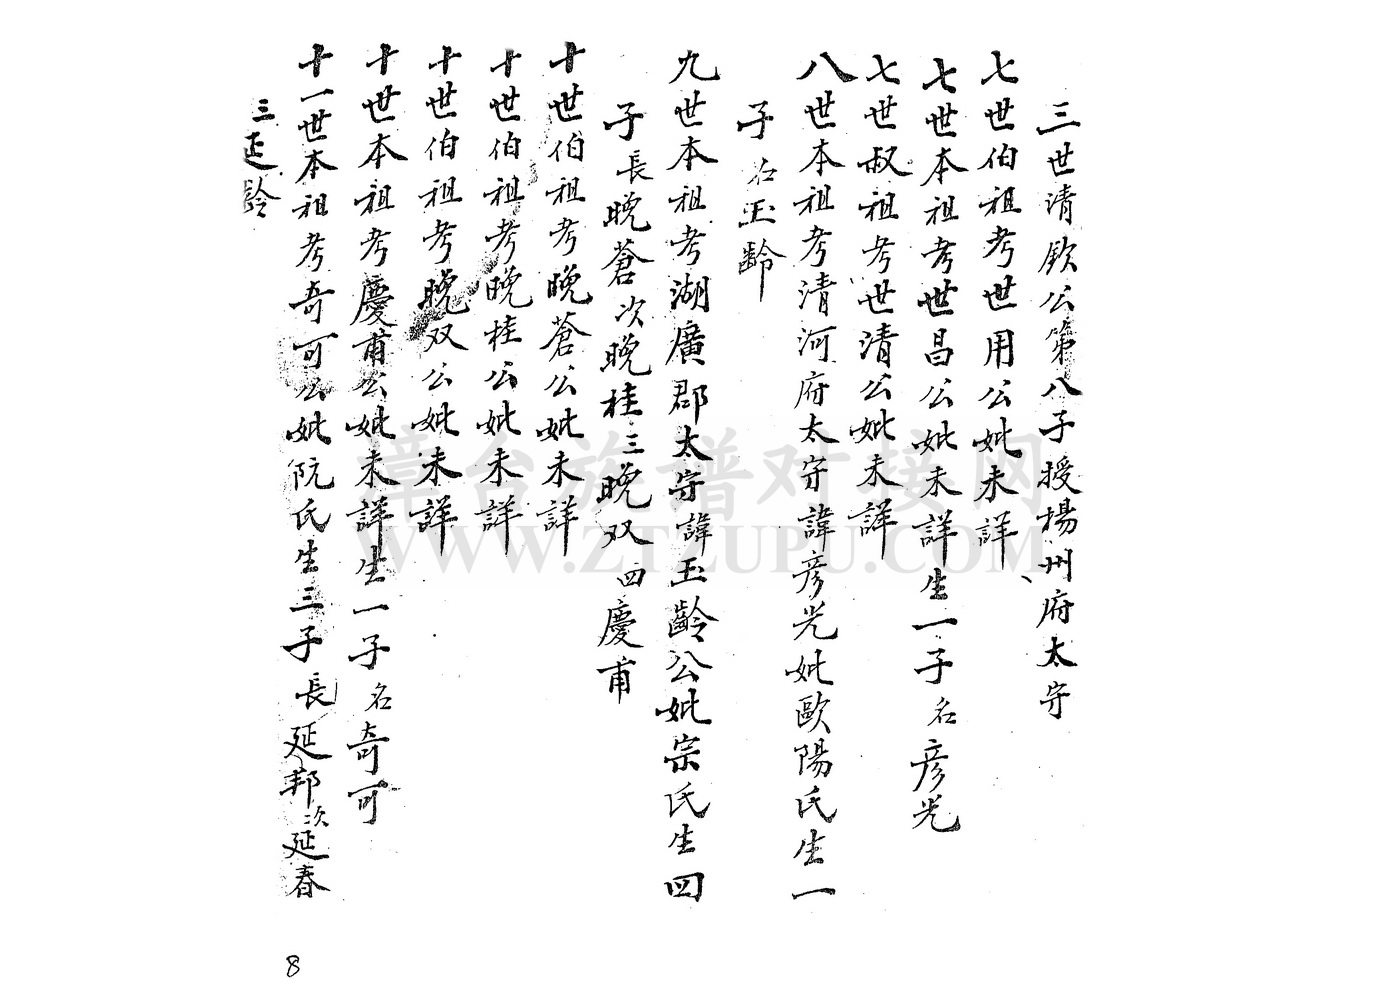 三世清欽公第八子授楊州府太守
七世伯祖考世用公妣未詳
七世本祖考世昌公妣未詳生一子名彥光
七世叔祖考世清公妣未詳
八世本祖考清河府太守諱彥光妣歐陽氏生一
子名玉齡
九世本祖考湖廣郡太守諱玉齡公妣宗氏生四
子長晚蒼次晚桂三晚双四慶甫
十世伯祖考晚蒼公妣未詳
十世伯祖考晚桂公妣未詳
十世伯祖考晚双公妣未詳
十世本祖考慶甫公妣未詳生一子名奇可
十一世本祖考奇可公妣阮氏生三子長延邦次延春
三延齡
漳台族谱对接网
WWW.ZTZUPU.COM
8